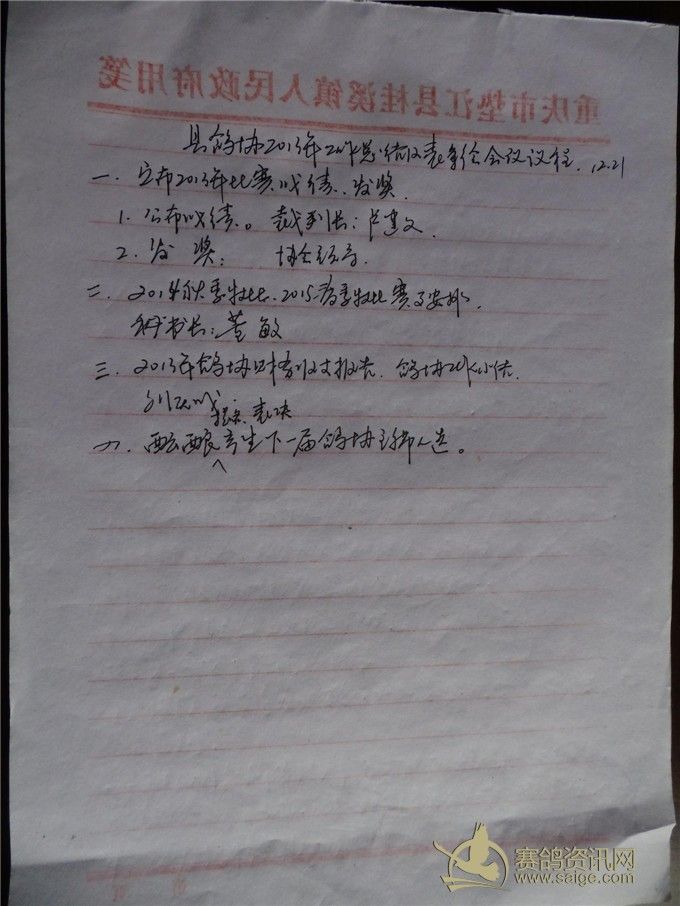 重庆市垫江县桂溪镇人民政府用笺
县鸽协2013年工作总结及表彰会会议议程. 12.21
一. 宣布2013年比赛成绩、发奖.
1. 公布成绩。裁判长: 卢建文.
2. 发奖: 协会领导.
二. 2014秋季特比、2015春季特比赛事安排.
秘书长: 董敏
三. 2013年鸽协财务收支报告. 鸽协工作小结.
提案. 表决
四. 酝酿产生下一届鸽协主席人选。
赛鸽资讯网
www.saige.com